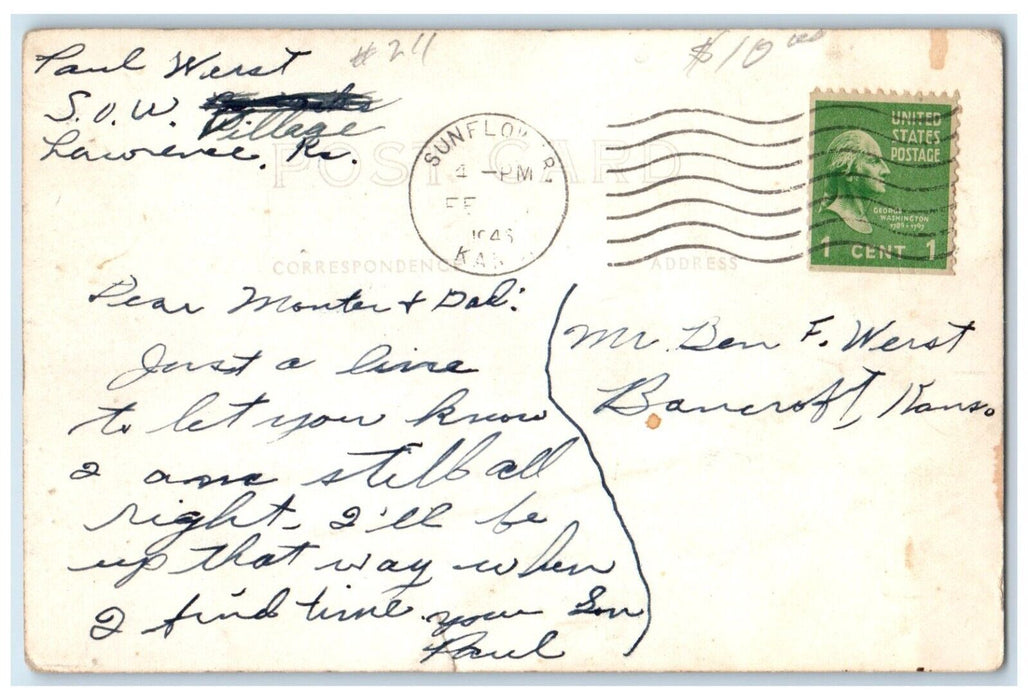 Paul Werst
#24
$10.00
S.O.W. Village
Lawrence, Ks.
POST CARD
SUNFLOWER
4 -PM
FE
1946
KAN
UNITED
STATES
POSTAGE
GEORGE
WASHINGTON
1789-1797
1 CENT 1
CORRESPONDENCE
ADDRESS
Dear Monter + Dad:
Just a line
to let you know
I am still all
right. I'll be
up that way when
I find time your Son
Paul
Mr. Ben F. Werst
Bancroft, Kans.